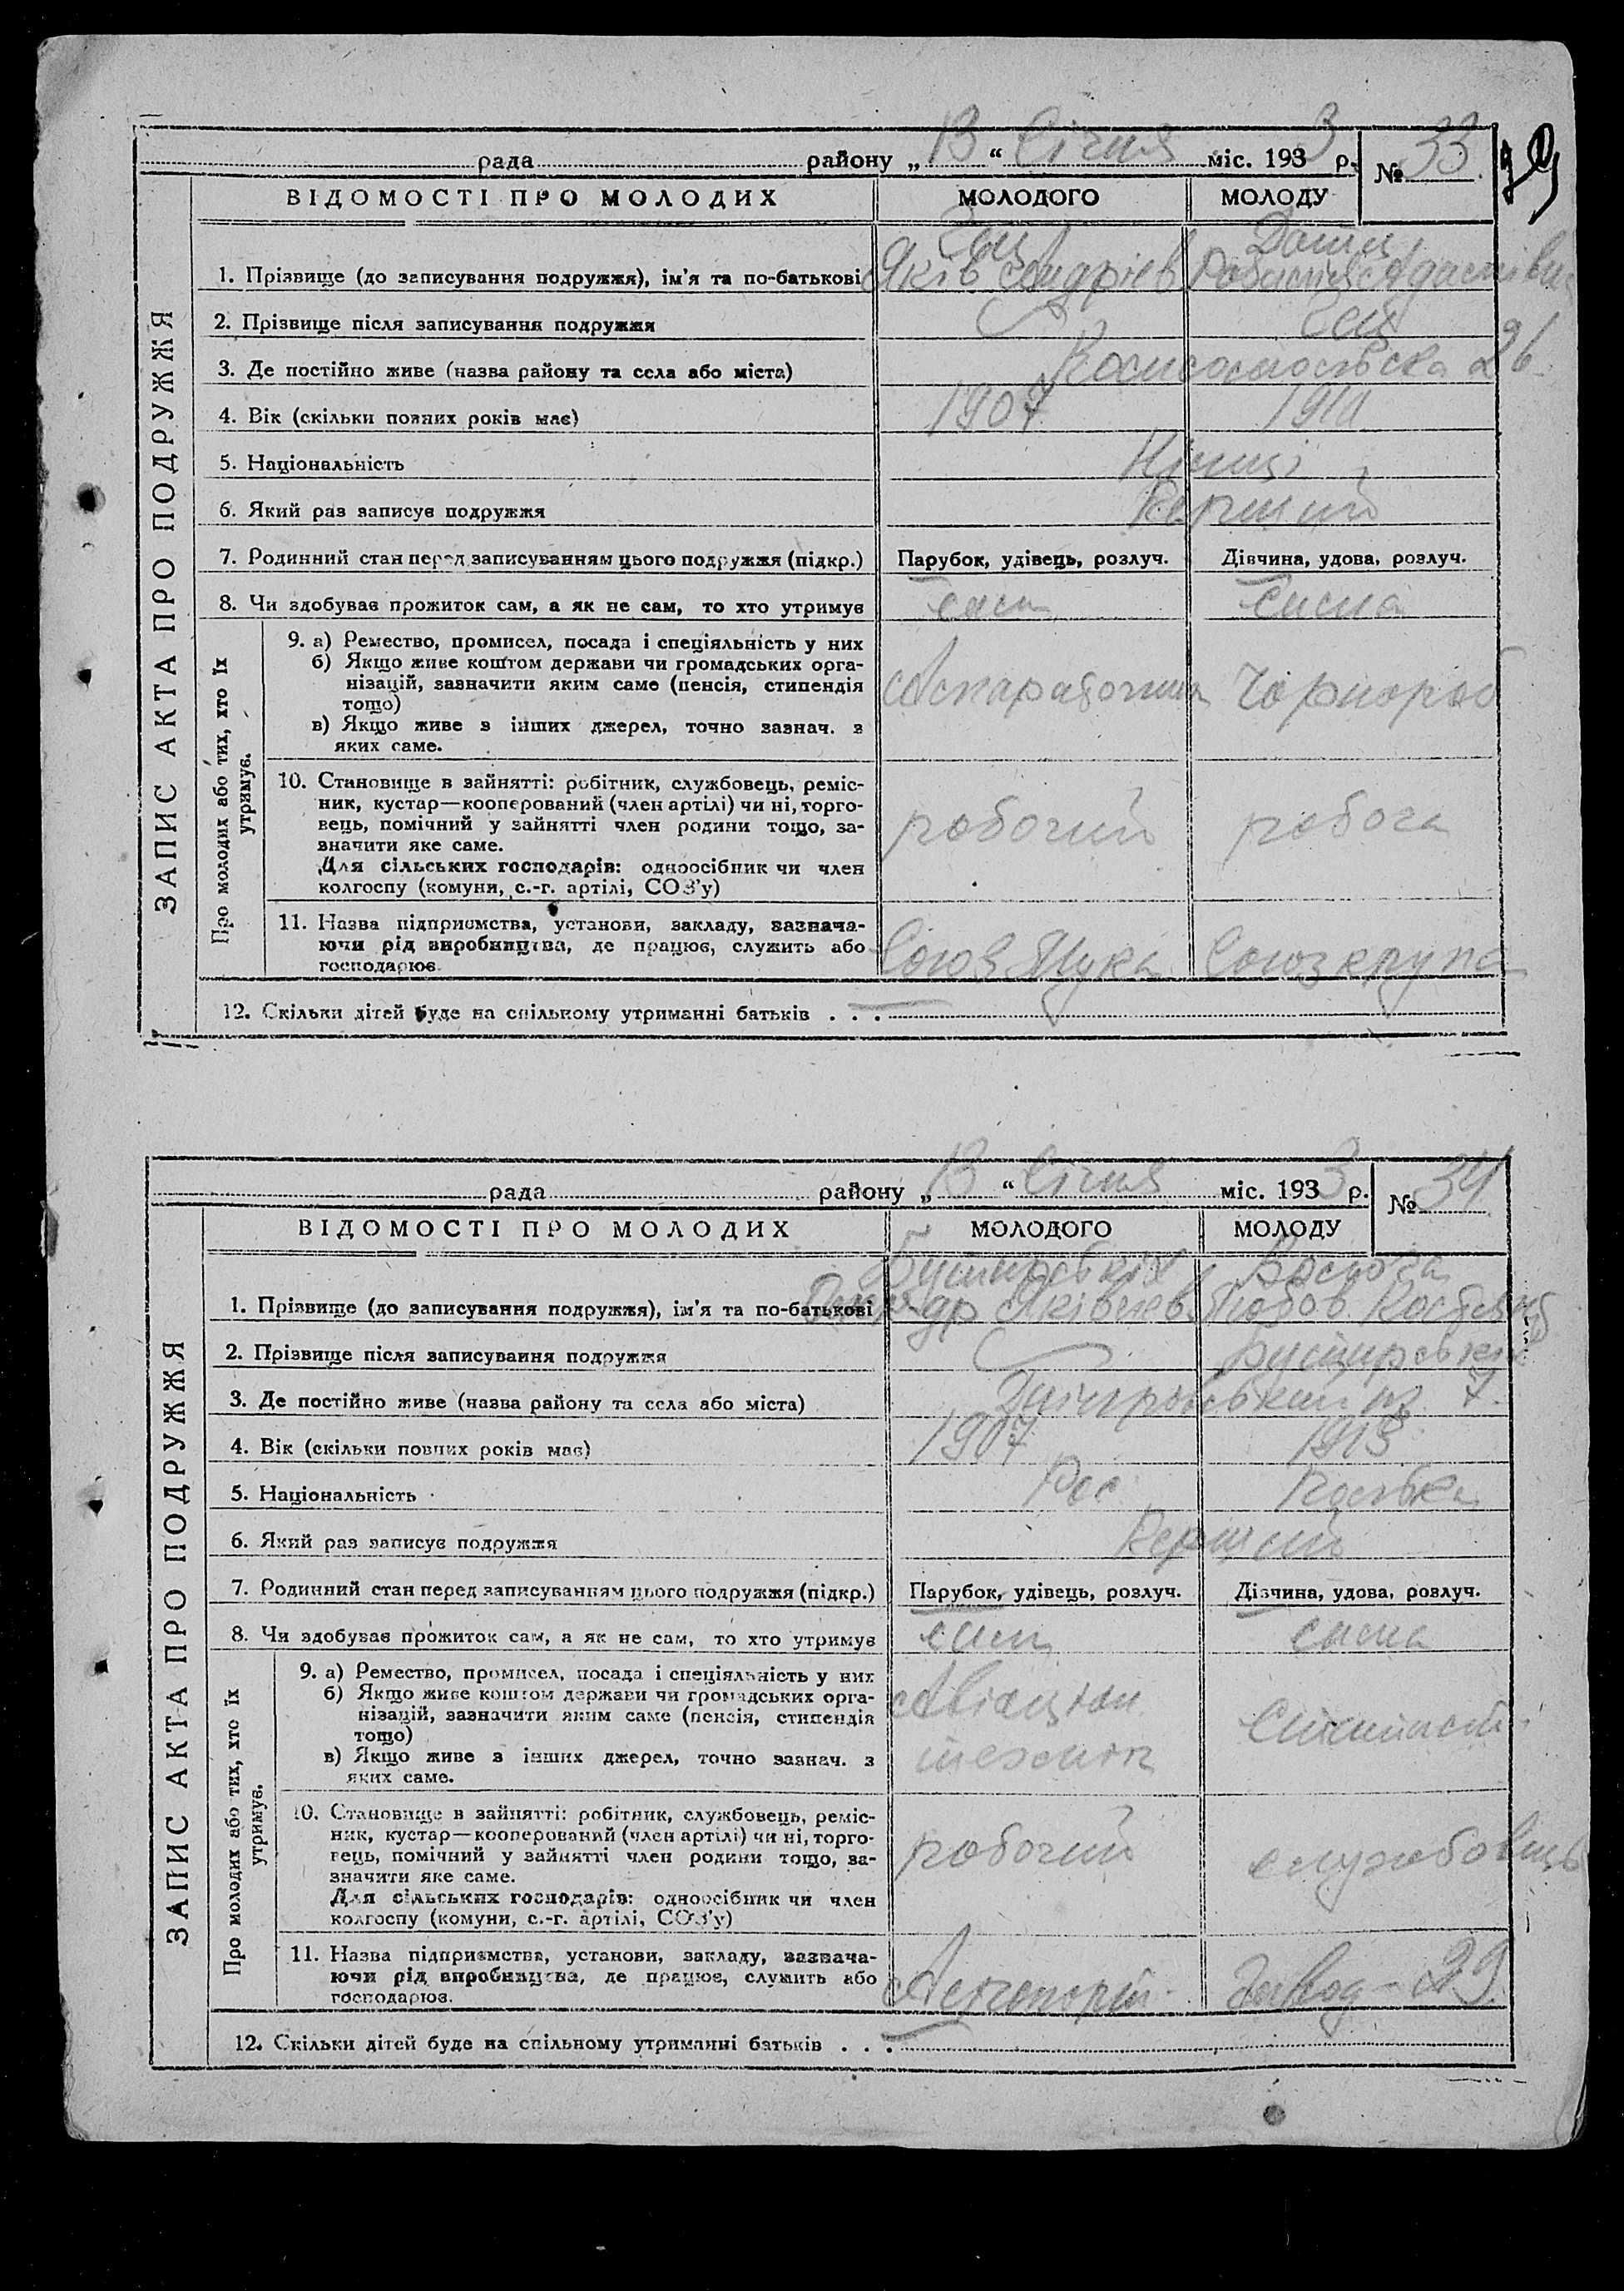 рада району „ 13 “ Січня міс. 1933 р. № 33
ВІДОМОСТІ ПРО МОЛОДИХ МОЛОДОГО МОЛОДУ
ЗАПИС АКТА ПРО ПОДРУЖЖЯ
1. Прізвище (до записування подружжя), ім’я та по-батькові Яків Андріев
2. Прізвище після записування подружжя
3. Де постійно живе (назва району та села або міста) Комсомольська 26
4. Вік (скільки повних років має) 1907
5. Національність Німці
6. Який раз записує подружжя Перший
7. Родинний стан перед записуванням цього подружжя (підкр.) Парубок, удівець, розлуч. Дівчина, удова, розлуч.
8. Чи здобував прожиток сам, а як не сам, то хто утримує сам сама
Про молодих або тих, хто їх утримує.
9. а) Ремество, промисел, посада і спеціяльність у них
б) Якщо живе коштом держави чи громадських орга-
нізацій, зазначити яким саме (пенсія, стипендія
тощо)
в) Якщо живе з інших джерел, точно зазнач. з
яких саме.
Чорнороб
10. Становище в зайнятті: робітник, службовець, реміс-
ник, кустар—кооперований (член артілі) чи ні, торго-
вець, помічний у зайнятті член родини тощо, за-
значити яке саме.
Для сільських господарів: одноосібник чи член
колгоспу (комуни, с.-г. артілі, СОЗ’у)
робочий робоча
11. Назва підприємства, установи, закладу, зазнача-
ючи рід виробництва, де працює, служить або
господарює.
Союз Мука Союзкрупа
12. Скільки дітей буде на спільному утриманні батьків . . .
рада району „ 13 “ Січня міс. 1933 р. № 34
ВІДОМОСТІ ПРО МОЛОДИХ МОЛОДОГО МОЛОДУ
ЗАПИС АКТА ПРО ПОДРУЖЖЯ
1. Прізвище (до записування подружжя), ім’я та по-батькові Яківлев Любов
2. Прізвище після записування подружжя
3. Де постійно живе (назва району та села або міста) 7
4. Вік (скільки повних років має) 1907 1913
5. Національність Рос Полька
6. Який раз записує подружжя Перший
7. Родинний стан перед записуванням цього подружжя (підкр.) Парубок, удівець, розлуч. Дівчина, удова, розлуч.
8. Чи здобував прожиток сам, а як не сам, то хто утримує сам сама
Про молодих або тих, хто їх утримує.
9. а) Ремество, промисел, посада і спеціяльність у них
б) Якщо живе коштом держави чи громадських орга-
нізацій, зазначити яким саме (пенсія, стипендія
тощо)
в) Якщо живе з інших джерел, точно зазнач. з
яких саме.
Авіаціон
технік
10. Становище в зайнятті: робітник, службовець, реміс-
ник, кустар—кооперований (член артілі) чи ні, торго-
вець, помічний у зайнятті член родини тощо, за-
значити яке саме.
Для сільських господарів: одноосібник чи член
колгоспу (комуни, с.-г. артілі, СОЗ’у)
робочий службовець
11. Назва підприємства, установи, закладу, зазнача-
ючи рід виробництва, де працює, служить або
господарює.
Завод - 29
12. Скільки дітей буде на спільному утриманні батьків . . .